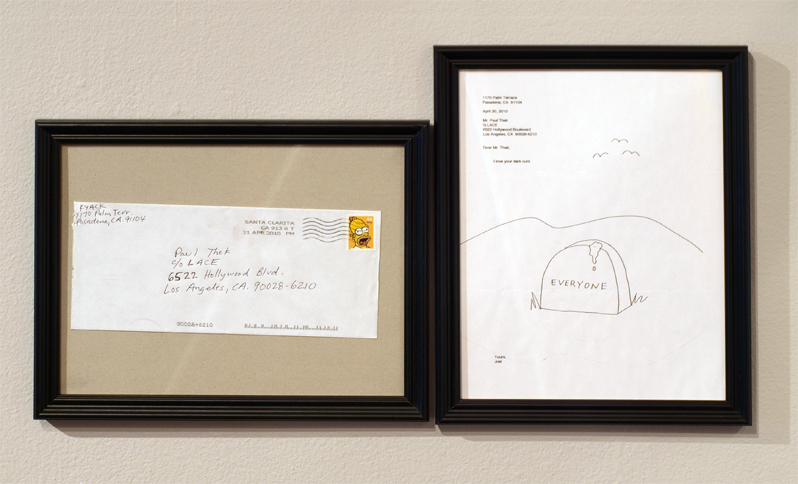 KYACK
1170 Palm Terr.
Pasadena, CA. 91104
SANTA CLARITA
CA 913 6 T
21 APR 2010 PM
44
Paul Thek
c/o LACE
6522 Hollywood Blvd.
Los Angeles, CA. 90028-6210
90028+6210
1170 Palm Terrace
Pasadena, CA 91104
April 20, 2010
Mr. Paul Thek
℅ LACE
6522 Hollywood Boulevard
Los Angeles, CA 90028-6210
Dear Mr. Thek,
I love your dark cult.
EVERYONE
Yours,